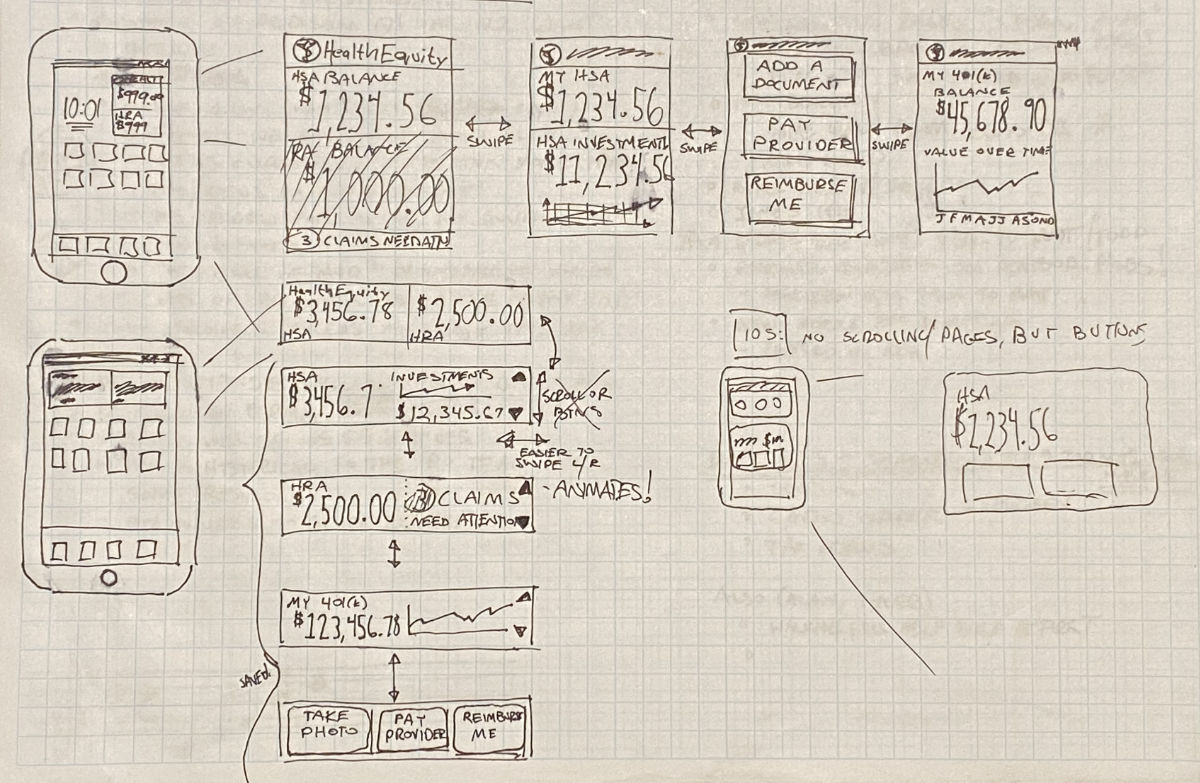 10:01
$979.00
HRA
$999
HealthEquity
HSA BALANCE
$1,234.56
HRA BALANCE
$1,000.00
3 CLAIMS NEED ATTN
SWIPE
MY HSA
$1,234.56
HSA INVESTMENT
$11,234.56
SWIPE
ADD A
DOCUMENT
PAY
PROVIDER
REIMBURSE
ME
SWIPE
MY 401(k)
BALANCE
$45,678.90
VALUE OVER TIME
J F M A J J A S O N D
HealthEquity
$3,456.78
HSA
$2,500.00
HRA
HSA
$3,456.7
INVESTMENTS
$12,345.67
SCROLL OR
BTNS
EASIER TO
SWIPE L/R
HRA
$2,500.00
3 CLAIMS
NEED ATTENTION
- ANIMATES!
MY 401(k)
$123,456.78
SAVED!
TAKE
PHOTO
PAY
PROVIDER
REIMBURSE
ME
IOS: NO SCROLLING/PAGES, BUT BUTTONS
HSA
$1,234.56